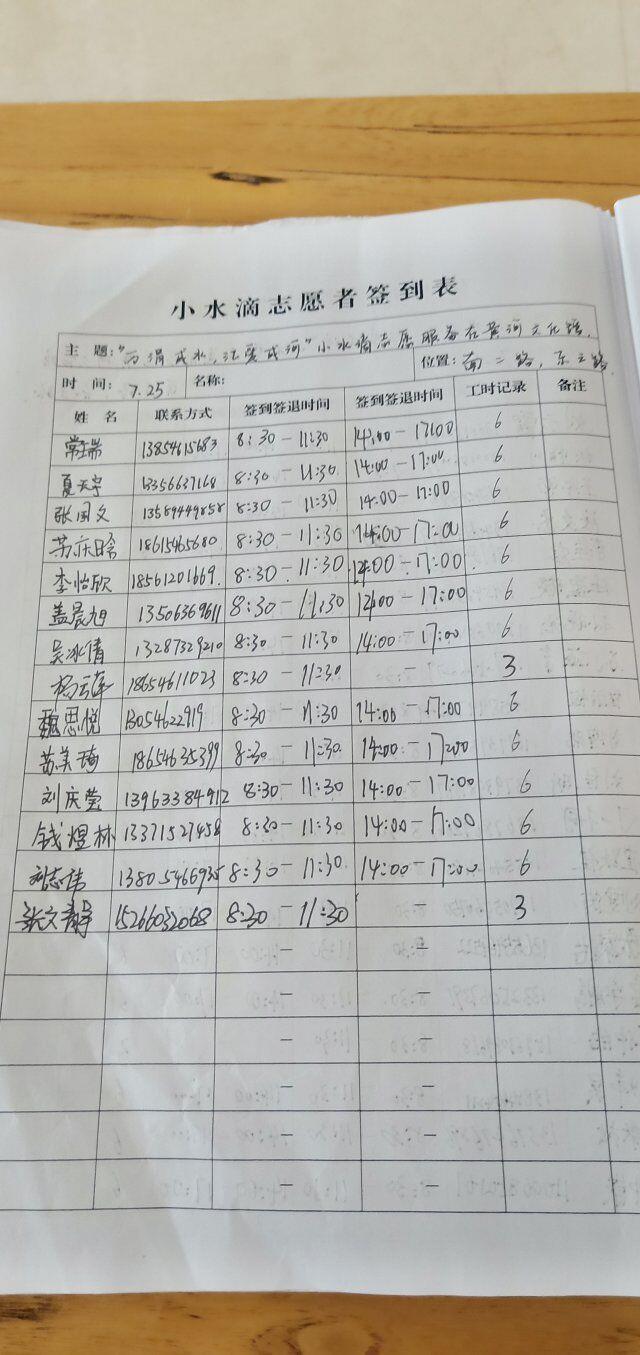 小水滴志愿者签到表
主 题："百涓成水，汇爱成河"小水滴志愿服务在黄河文化馆.
时 间：7.25 名称： 位置：南二路，东三路
姓 名 联系方式 签到签退时间 签到签退时间 工时记录 备注
13854615683 8:30-11:30 14:00-17:00 6
夏天宇 13356637168 8:30-11:30 14:00-17:00 6
张国文 13589449858 8:30-11:30 14:00-17:00 6
苏庆晗 18615465680 8:30-11:30 14:00-17:00 6
李怡欣 18561201669. 8:30-11:30 14:00-17:00 6
盖晨旭 13506369611 8:30-11:30 14:00-17:00 6
吴冰倩 13287329210 8:30-11:30 14:00-17:00 6
杨云莲 18654611023 8:30-11:30 - 3
魏思悦 13054622919 8:30-11:30 14:00-17:00 6
苗美琦 18654635399 8:30-11:30 14:00-17:00 6
刘庆莹 13963384912 8:30-11:30 14:00-17:00 6
钱煜林 13371527458 8:30-11:30 14:00-17:00 6
刘志伟 13805466935 8:30-11:30 14:00-17:00 6
张文静 15266032068 8:30-11:30 - 3
- -
- -
- -
- -
- -
- -